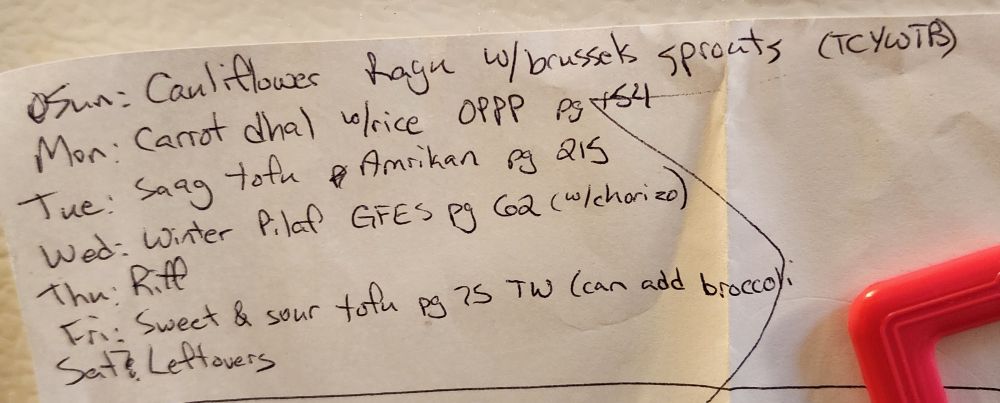 Sun: Cauliflower Ragu w/brussels sprouts (TCYWTB)
Mon: Carrot dhal w/rice OPPP pg 154
Tue: Saag tofu Amrikan pg 215
Wed: Winter Pilaf GFES pg 62 (w/chorizo)
Thu: Riff
Fri: Sweet & sour tofu pg 75 TW (can add broccoli
Sat: Leftovers